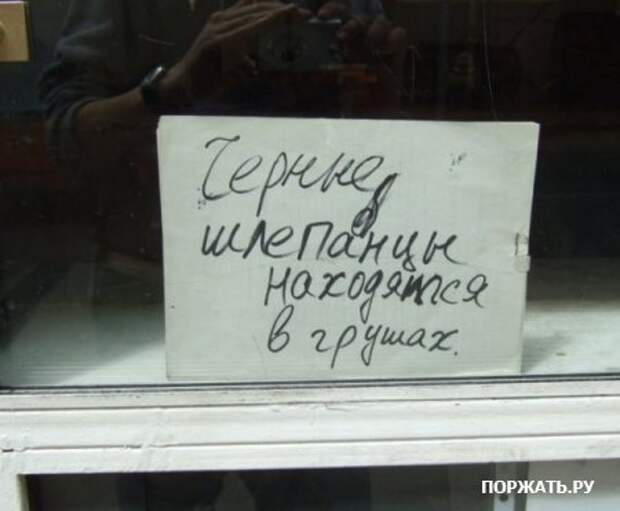 Черные
шлепанцы
находятся
в грушах.
ПОРЖАТЬ.РУ